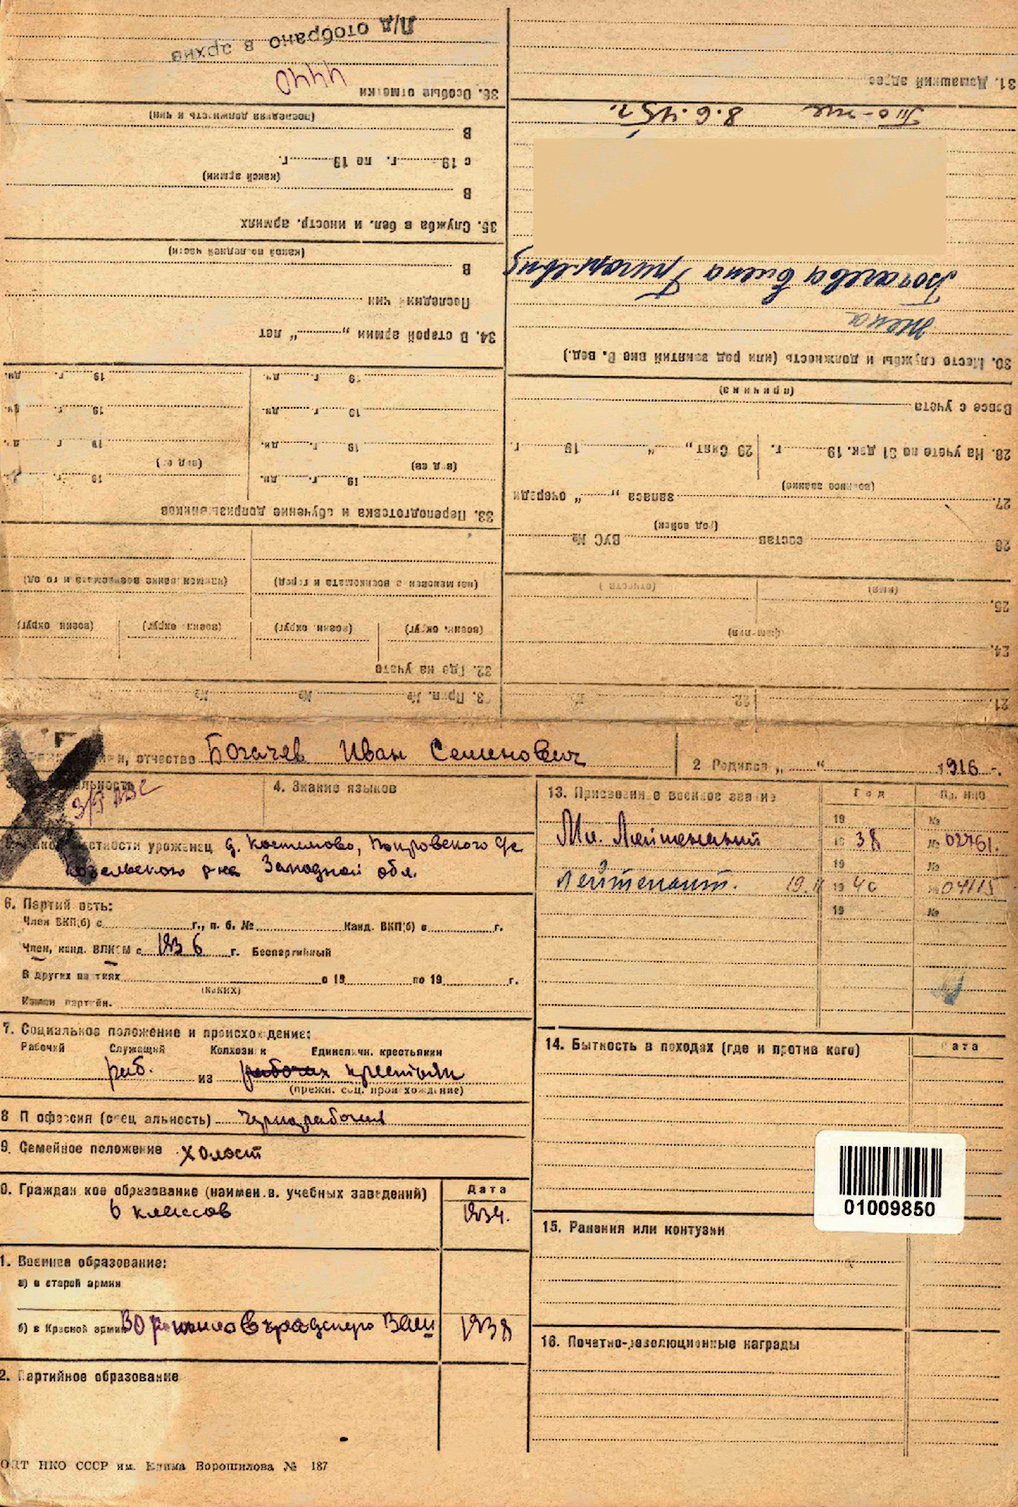 Фамилия, имя, отчество Богачев Иван Семенович
2 Родился „ “ 1916 г.
4. Знание языков
уроженец д. Костешово, Покровского с/с
Козельского р-на Западной обл.
6. Партийность:
Член ВКП(б) с г., п. б. № Канд. ВКП(б) с г.
Член, канд. ВЛКСМ с 1936 г. Беспартийный
В других партиях с 19 по 19 г.
(каких)
7. Социальное положение и происхождение:
Рабочий Служащий Колхозник Единоличн. крестьянин
раб. из рабочих крестьян
(прежн. соц. происхождение)
8 Профессия (специальность) Чернорабочий
9. Семейное положение холост
0. Гражданское образование (наимен. в. учебных заведений) Дата
6 классов 1934.
1. Военное образование:
а) в старой армии
б) в Красной армии Ворошиловградскую ВАШ 1938
2. Партийное образование
ОДТ НКО СССР им. Клима Ворошилова № 187
13. Присвоение военное звание Год Пр. НКО
19 №
Мл. Лейтенант 19 38 № 02761.
19 №
Лейтенант. 19 40 № 04115
19 №
14. Бытность в походах (где и против кого) Дата
01009850
15. Ранения или контузии
16. Почетно-революционные награды
21. 22. №
24.
(фамилия)
25.
(имя) (отчество)
26 состав ВУС №
(род войск)
27. запаса „ “ очереди
(военное звание)
28. На учете по 31 дек. 19 г. 29 Снят „ “ 19 г
Вовсе с учета
(причина)
30. Место службы и должность (или род занятий вне В. вед.)
жена
Богачева Елена Григорьевна
То-же 8.6.45 г.
31. Домашний адрес
32. Где на учете
(воен. округ) (воен. округ) (воен. округ) (воен округ)
33. Переподготовка и обучение допризывников
19 г. дн. 19 г. дн.
19 г. дн. 19 г. дн.
19 г. дн. 19 г. дн.
19 г. дн. 19 г. дн.
34. В старой армии „ “ лет
Последний чин
в
(какой последней части)
35. Служба в бел. и иностр. армиях
В
(какой армии)
с 19 г. по 19 г.
В
(последняя должность и чин)
36. Особые отметки
4440
Л/д отобрано в архив